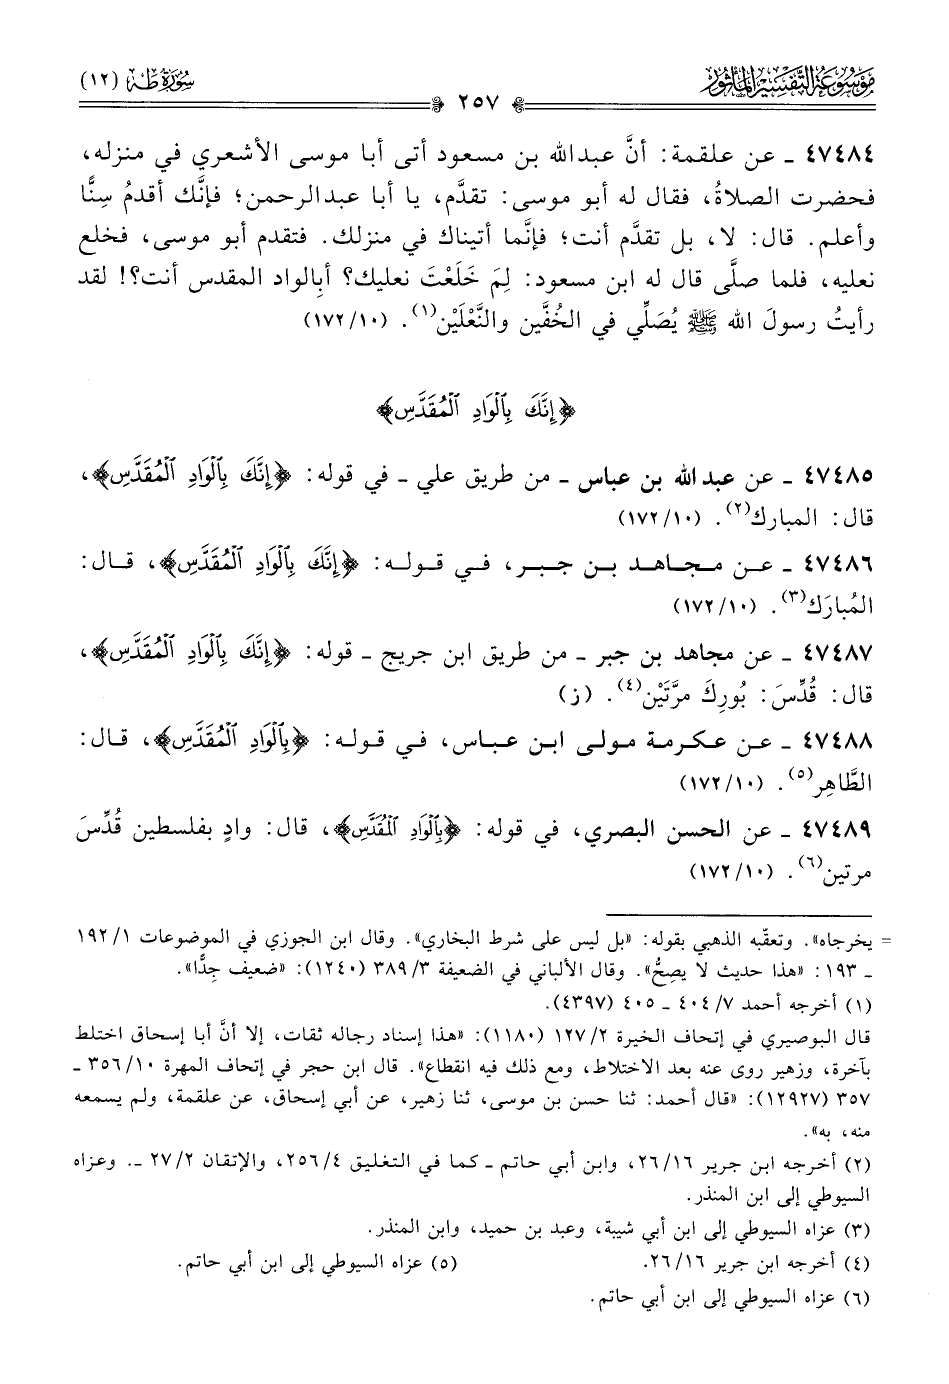 مَوْسُوعَةُ التَّفْسِيرِ المَأْثُورِ
سُورَةُ طه (١٢)
٢٥٧
٤٧٤٨٤ ـ عن علقمة: أنَّ عبدالله بن مسعود أتى أبا موسى الأشعري في منزله،
فحضرت الصلاةُ، فقال له أبو موسى: تقدَّم، يا أبا عبدالرحمن؛ فإنَّك أقدمُ سِنًّا
وأعلم. قال: لا، بل تقدَّم أنت؛ فإنَّما أتيناك في منزلك. فتقدم أبو موسى، فخلع
نعليه، فلما صلَّى قال له ابن مسعود: لِمَ خَلَعْتَ نعليك؟ أبِالواد المقدس أنت؟! لقد
رأيتُ رسولَ الله ﷺ يُصَلِّي في الخُفَّين والنَّعْلَيْن(١). (١٧٢/١٠)
﴿إِنَّكَ بِٱلْوَادِ ٱلْمُقَدَّسِ﴾
٤٧٤٨٥ ـ عن عبدالله بن عباس ـ من طريق علي ـ في قوله: ﴿إِنَّكَ بِٱلْوَادِ ٱلْمُقَدَّسِ﴾،
قال: المبارك(٢). (١٧٢/١٠)
٤٧٤٨٦ ـ عن مجاهد بن جبر، في قوله: ﴿إِنَّكَ بِٱلْوَادِ ٱلْمُقَدَّسِ﴾، قال:
المُبارَك(٣). (١٧٢/١٠)
٤٧٤٨٧ ـ عن مجاهد بن جبر ـ من طريق ابن جريج ـ قوله: ﴿إِنَّكَ بِٱلْوَادِ ٱلْمُقَدَّسِ﴾،
قال: قُدِّسَ: بُورِكَ مرَّتَيْن(٤). (ز)
٤٧٤٨٨ ـ عن عكرمة مولى ابن عباس، في قوله: ﴿بِٱلْوَادِ ٱلْمُقَدَّسِ﴾، قال:
الطَّاهِر(٥). (١٧٢/١٠)
٤٧٤٨٩ ـ عن الحسن البصري، في قوله: ﴿بِٱلْوَادِ ٱلْمُقَدَّسِ﴾، قال: وادٍ بفلسطين قُدِّسَ
مرتين(٦). (١٧٢/١٠)
= يخرجاه». وتعقّبه الذهبي بقوله: «بل ليس على شرط البخاري». وقال ابن الجوزي في الموضوعات ١٩٢/١
ـ ١٩٣: «هذا حديث لا يصِحُّ». وقال الألباني في الضعيفة ٣٨٩/٣ (١٢٤٠): «ضعيف جدًّا».
(١) أخرجه أحمد ٤٠٤/٧ ـ ٤٠٥ (٤٣٩٧).
قال البوصيري في إتحاف الخيرة ١٢٧/٢ (١١٨٠): «هذا إسناد رجاله ثقات، إلا أنَّ أبا إسحاق اختلط
بآخرة، وزهير روى عنه بعد الاختلاط، ومع ذلك فيه انقطاع». قال ابن حجر في إتحاف المهرة ٣٥٦/١٠ ـ
٣٥٧ (١٢٩٢٧): «قال أحمد: ثنا حسن بن موسى، ثنا زهير، عن أبي إسحاق، عن علقمة، ولم يسمعه
منه، به».
(٢) أخرجه ابن جرير ٢٦/١٦، وابن أبي حاتم ـ كما في التغليق ٢٥٦/٤، والإتقان ٢٧/٢ ـ. وعزاه
السيوطي إلى ابن المنذر.
(٣) عزاه السيوطي إلى ابن أبي شيبة، وعبد بن حميد، وابن المنذر.
(٤) أخرجه ابن جرير ٢٦/١٦. (٥) عزاه السيوطي إلى ابن أبي حاتم.
(٦) عزاه السيوطي إلى ابن أبي حاتم.